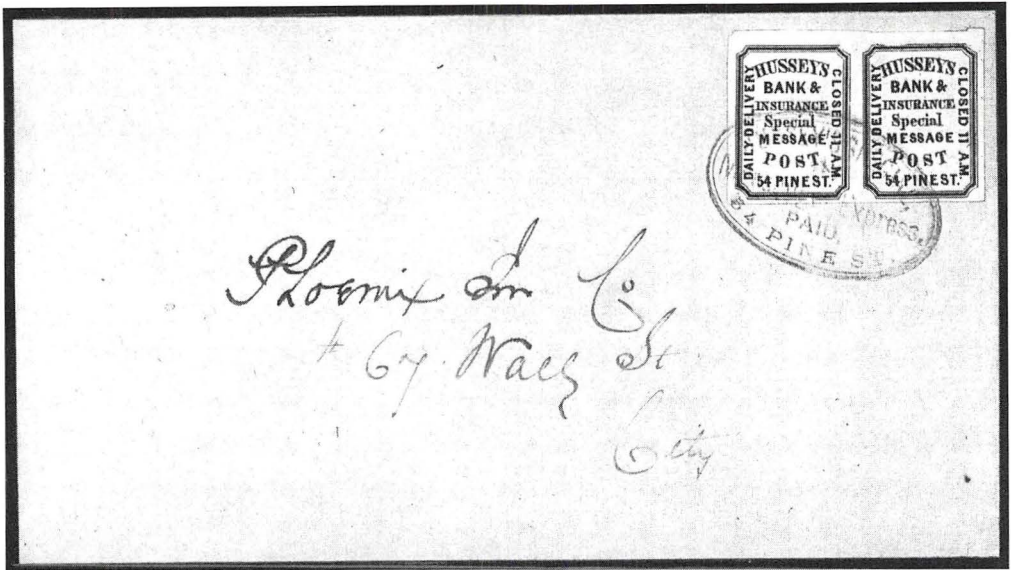 DAILY DELIVERY
HUSSEY'S
BANK &
INSURANCE
Special
MESSAGE
POST
54 PINE ST.
CLOSED 11 A.M.
DAILY DELIVERY
HUSSEY'S
BANK &
INSURANCE
Special
MESSAGE
POST
54 PINE ST.
CLOSED 11 A.M.
Express.
PAID,
54 PINE ST.
Phoenix Ins Co
67 Wall St
City